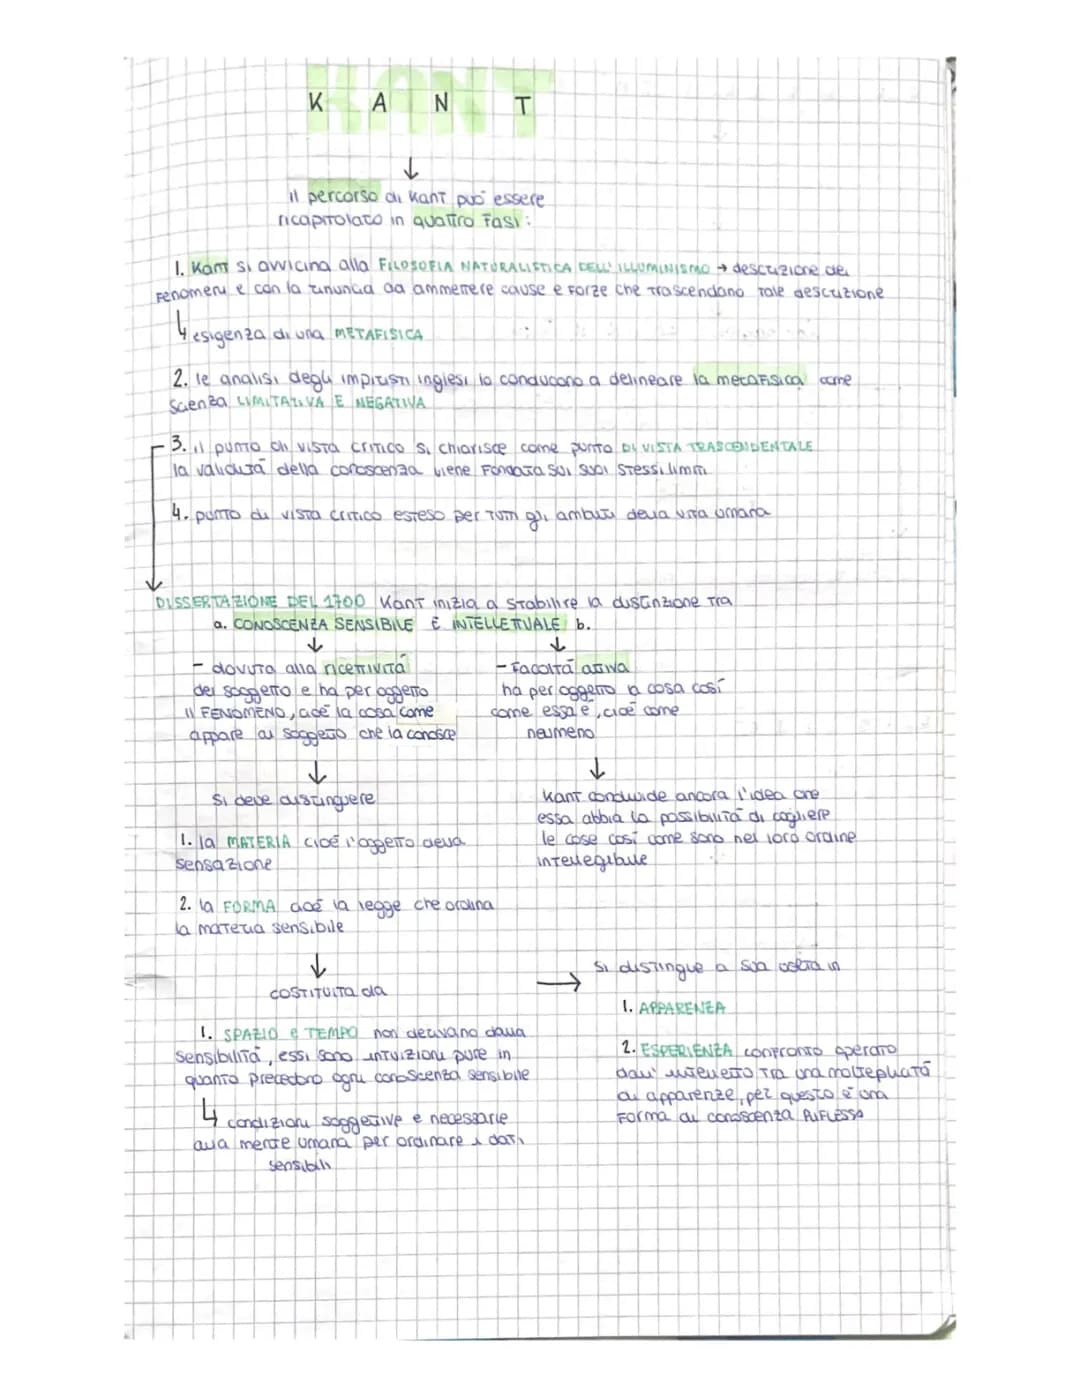 KANT
K A N T
↓
il percorso di Kant può essere
ricapitolato in quattro fasi:
1. Kant si avvicina alla FILOSOFIA NATURALISTICA DELL'ILLUMINISMO → descrizione dei
fenomeni e con la rinuncia da ammettere cause e forze che trascendano tale descrizione
↳ esigenza di una METAFISICA
2. le analisi degli impiristi inglesi lo conducono a delineare la metafisica come
scienza LIMITATIVA E NEGATIVA
3. il punto di vista critico si chiarisce come punto DI VISTA TRASCENDENTALE
la validità della conoscenza viene fondata sui suoi stessi limiti
4. punto di vista critico esteso per tutti gli ambiti della vita umana
↓
DISSERTAZIONE DEL 1700 Kant inizia a stabilire la distinzione tra
a. CONOSCENZA SENSIBILE E INTELLETTUALE b.
↓ ↓
- dovuta alla ricettività
del soggetto e ha per oggetto
il FENOMENO, cioè la cosa come
appare al soggetto che la conosce
↓
si deve distinguere
1. la MATERIA cioè l'oggetto della
sensazione
2. la FORMA cioè la legge che ordina
la materia sensibile
↓
COSTITUITA da
1. SPAZIO e TEMPO non derivano dalla
sensibilità, essi sono intuizioni pure in
quanto precedono ogni conoscenza sensibile
↳ condizioni soggettive e necessarie
alla mente umana per ordinare i dati
sensibili
- Facoltà attiva
ha per oggetto la cosa così
come essa è, cioè come
neumeno
↓
Kant condivide ancora l'idea che
essa abbia la possibilità di cogliere
le cose così come sono nel loro ordine
intellegibile
→ si distingue a sua volta in
1. APPARENZA
2. ESPERIENZA confronto operato
dall'intelletto tra una molteplicità
di apparenze, per questo è una
forma di conoscenza RIFLESSA